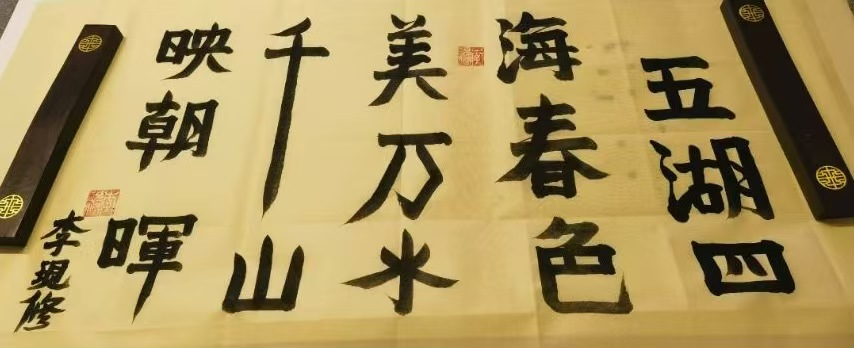 五湖四
海春色
美万水
千山
映朝暉
李現修